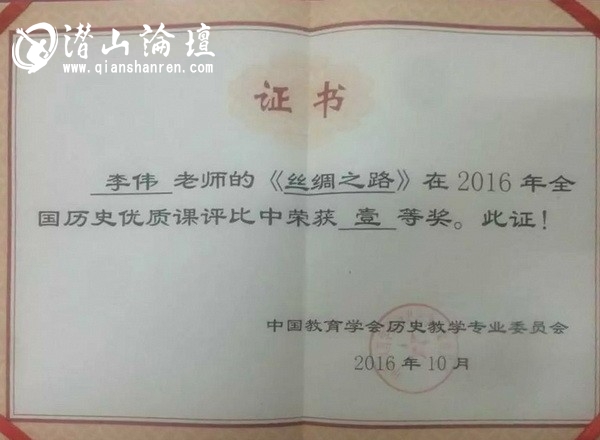 潜山論壇
www.qianshanren.com
证书
李伟 老师的《丝绸之路》在 2016 年全
国历史优质课评比中荣获 壹 等奖。此证！
中国教育学会历史教学专业委员会
2016 年 10 月